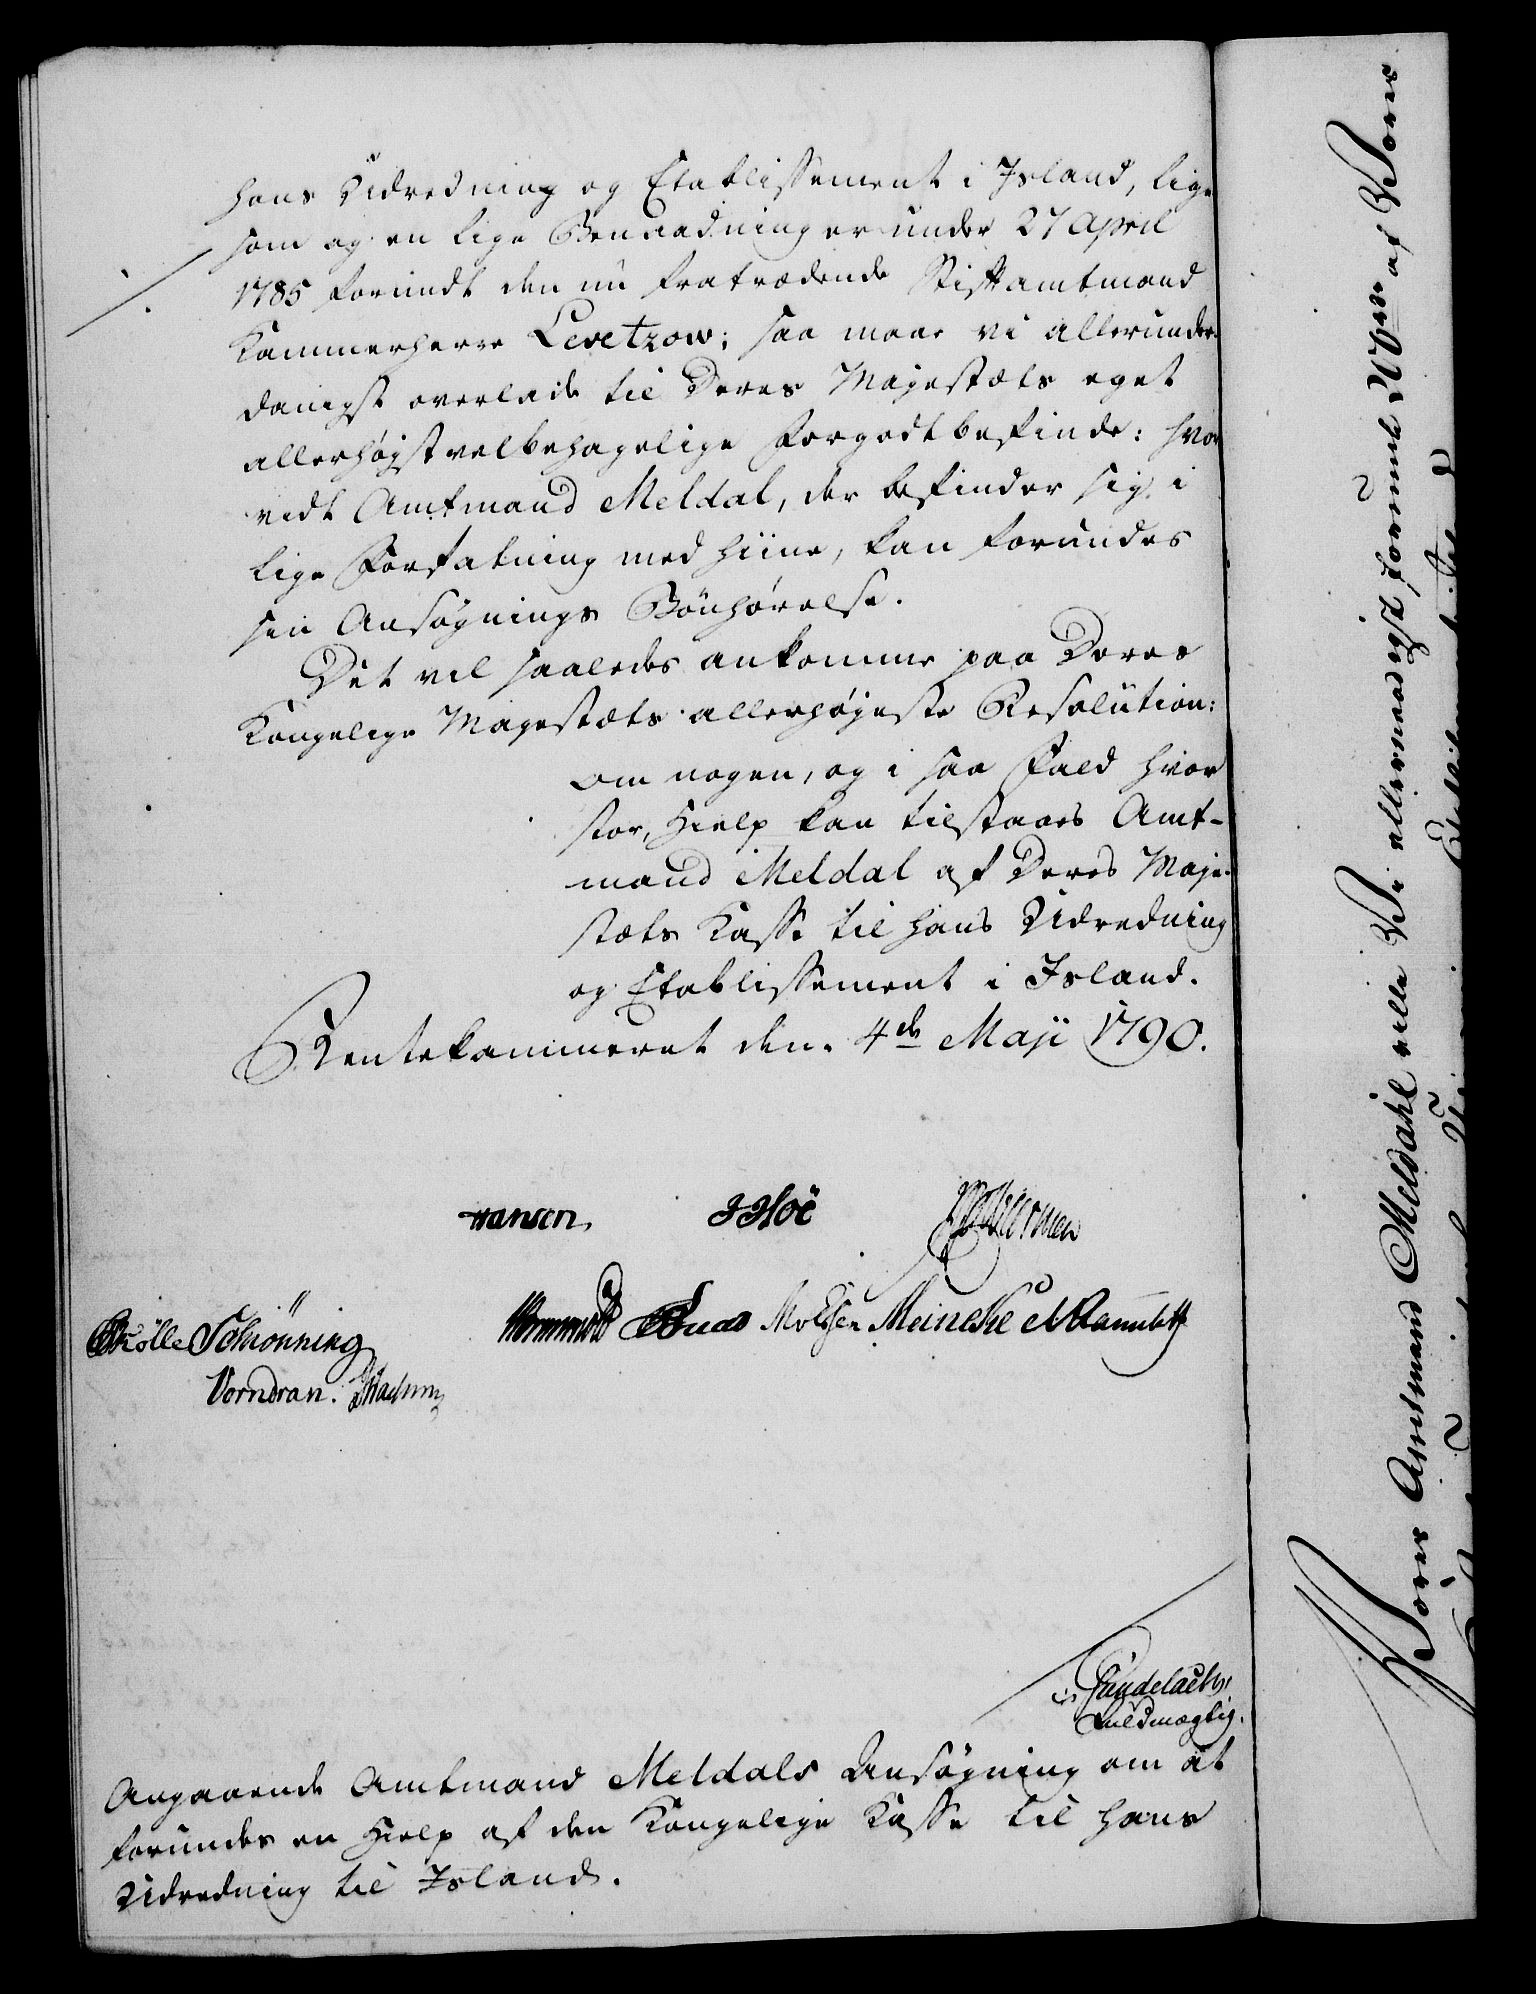 hans Udredning og Etablissement i Island, lige
som og en lige Benaadning er under 27 April
1785 forundt den nu fratrædende Stiftamtmand
Kammerherre Levetzow; saa maae vi allerunder-
danigst overlade til Deres Majestæts eget
allerhøjstvelbehagelige Forgodtbefinde: hvor
vidt Amtmand Meldal, der befinder sig i
lige Forfatning med hiine, kan forundes
sin Ansøgnings Bönhørelse.
Det vil saaledes ankomme paa Deres
Kongelige Majestæts allerhøjeste Resolution:
om nogen, og i saa Fald hvor
stor, Hielp kan tilstaaes Amt-
mand Meldal af Deres Maje-
stæts Kasse til hans Udredning
og Etablissement i Island.
Rentekammeret den 4de Maji 1790.
Hansen J Hoë
Schiønning Meinche
Vorndran.
Gundelach
Fuldmægtig.
Angaaende Amtmand Meldals Ansøgning om at
forundes en Hielp af den Kongelige Kasse til hans
Udredning til Island.
Vores Amtmand Meldahl ville Vi allernaadigst forunde af Vores